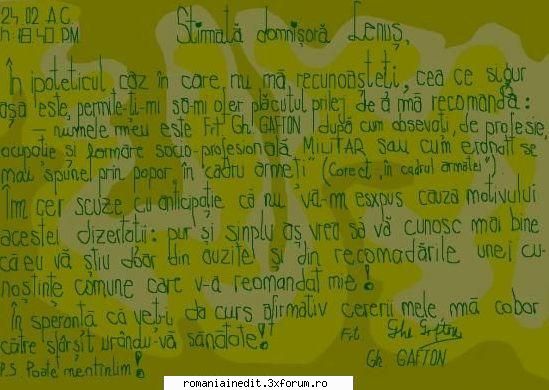 24.02 A.C.
h: 18.40 PM
Stimată domnișoră Lenuș,
În ipoteticul caz în care nu mă recunoașteți, ceea ce sigur
așa este, permite-ți-mi să-mi ofer plăcutul prilej de a mă recomanda:
– numele meu este Frt. Gh. GAFTON, după cum obsevați, de profesie,
ocupație și formare socio-profesională, MILITAR sau cum eronat se
mai spune, prin popor în "cadru armeti" (Corect, "în cadrul armatei").
Îmi cer scuze cu anticipație că nu v-am esxpus cauza motivului
acestei dizertații: pur și sinplu aș vrea să vă cunosc mai bine
că eu vă știu doar din auzite și din recomadările unei cu-
noștințe comune care v-a reomandat mie!
În speranța că veți da curs afirmativ cererii mele mă cobor
către sfârșit urându-vă sănătate!
Frt.
Gh. GAFTON
P.S. Poate mentinlim!
romaniainedit.3xforum.ro